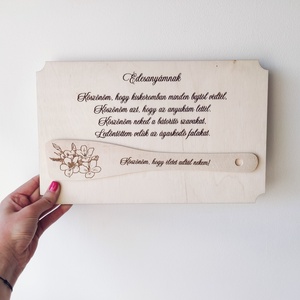 Édesanyámnak
Köszönöm, hogy kiskoromban minden bajtól védtél,
Köszönöm azt, hogy az anyukám lettél.
Köszönöm neked a bátorító szavakat,
Ledöntöttem velük az ágaskodó falakat.
Köszönöm, hogy életet adtál nekem!